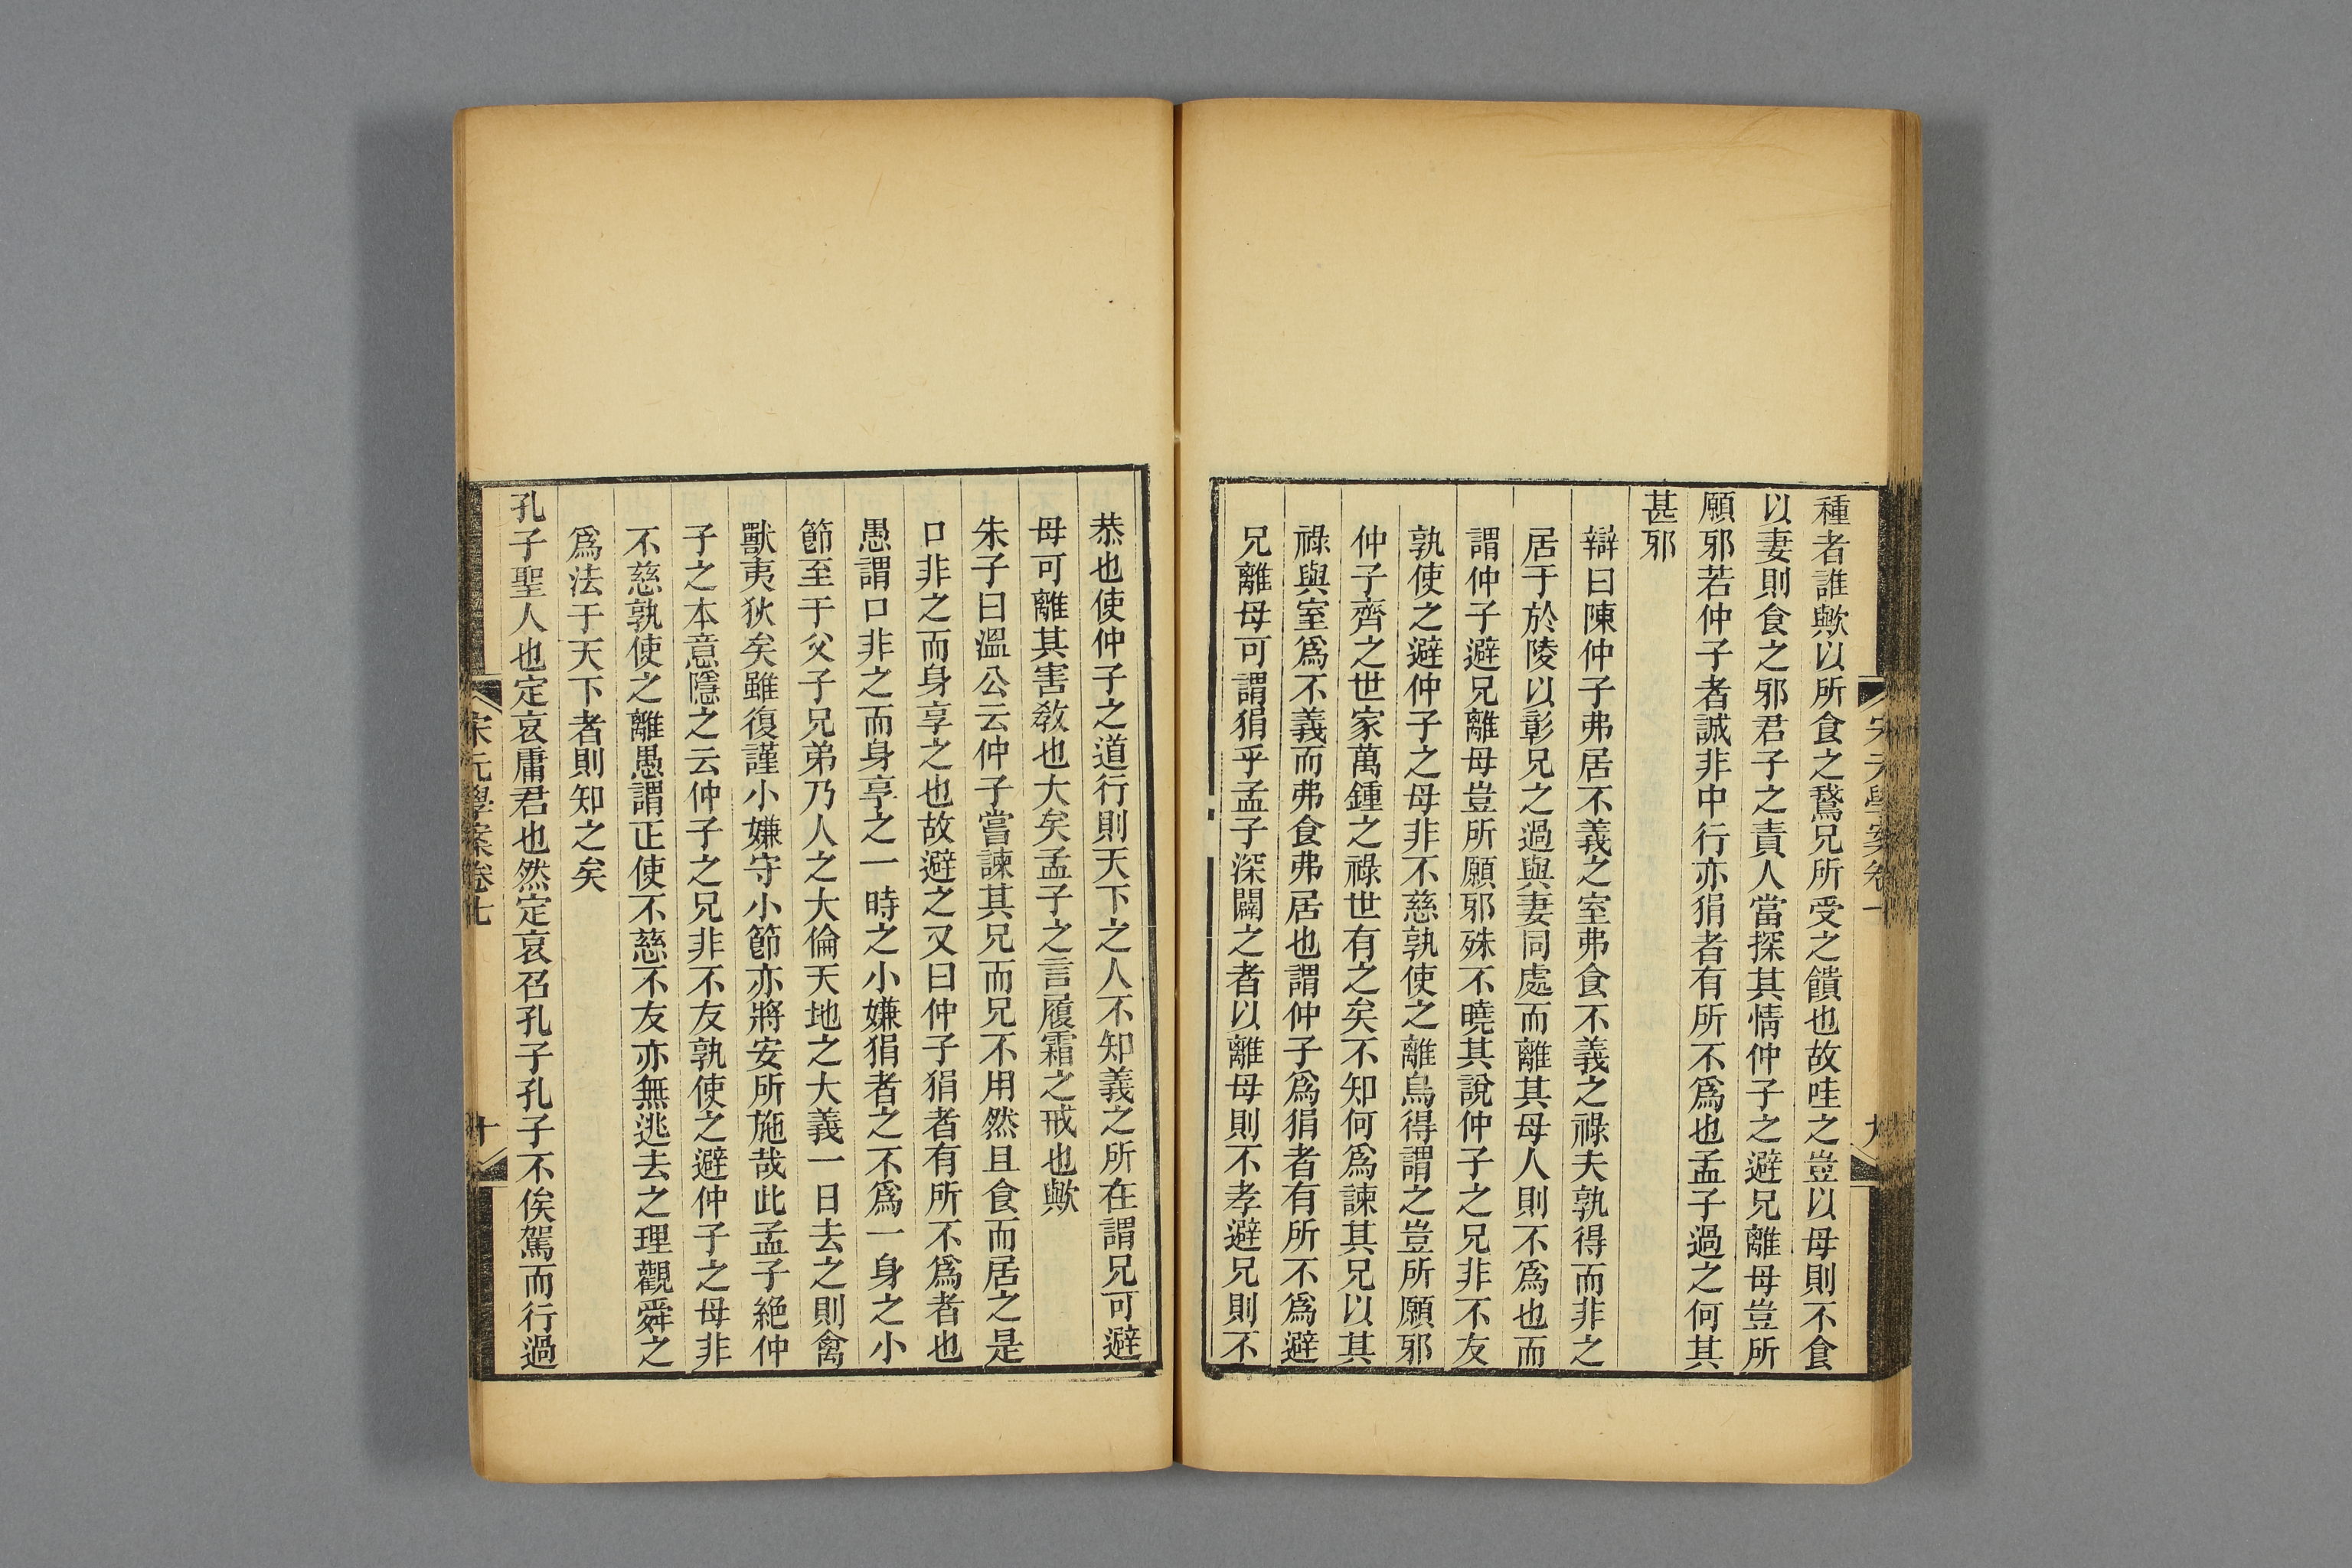 種者誰歟以所食之鵞兄所受之饋也故哇之豈以母則不食
以妻則食之邪君子之責人當探其情仲子之避兄離母豈所
願邪若仲子者誠非中行亦狷者有所不爲也孟子過之何其
甚邪
辯曰陳仲子弗居不義之室弗食不義之祿夫孰得而非之
居于於陵以彰兄之過與妻同處而離其母人則不爲也而
謂仲子避兄離母豈所願邪殊不曉其說仲子之兄非不友
孰使之避仲子之母非不慈孰使之離烏得謂之豈所願邪
仲子齊之世家萬鍾之祿世有之矣不知何爲諫其兄以其
祿與室爲不義而弗食弗居也謂仲子爲狷者有所不爲避
兄離母可謂狷乎孟子深闢之者以離母則不孝避兄則不
恭也使仲子之道行則天下之人不知義之所在謂兄可避
母可離其害敎也大矣孟子之言履霜之戒也歟
朱子曰溫公云仲子嘗諫其兄而兄不用然且食而居之是
口非之而身享之也故避之又曰仲子狷者有所不爲者也
愚謂口非之而身享之一時之小嫌狷者之不爲一身之小
節至于父子兄弟乃人之大倫天地之大義一日去之則禽
獸夷狄矣雖復謹小嫌守小節亦將安所施哉此孟子絕仲
子之本意隱之云仲子之兄非不友孰使之避仲子之母非
不慈孰使之離愚謂正使不慈不友亦無逃去之理觀舜之
爲法于天下者則知之矣
孔子聖人也定哀庸君也然定哀召孔子孔子不俟駕而行過
宋元學案卷七
十